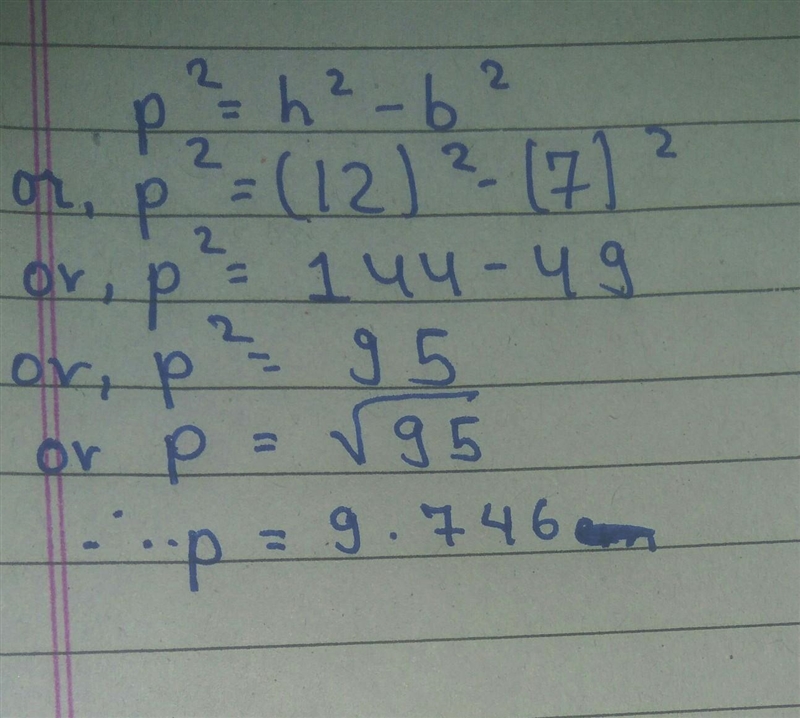 p² = h² - b²
or, p² = (12)² - (7)²
or, p² = 144 - 49
or, p² = 95
or p = √95
∴ p = 9.746